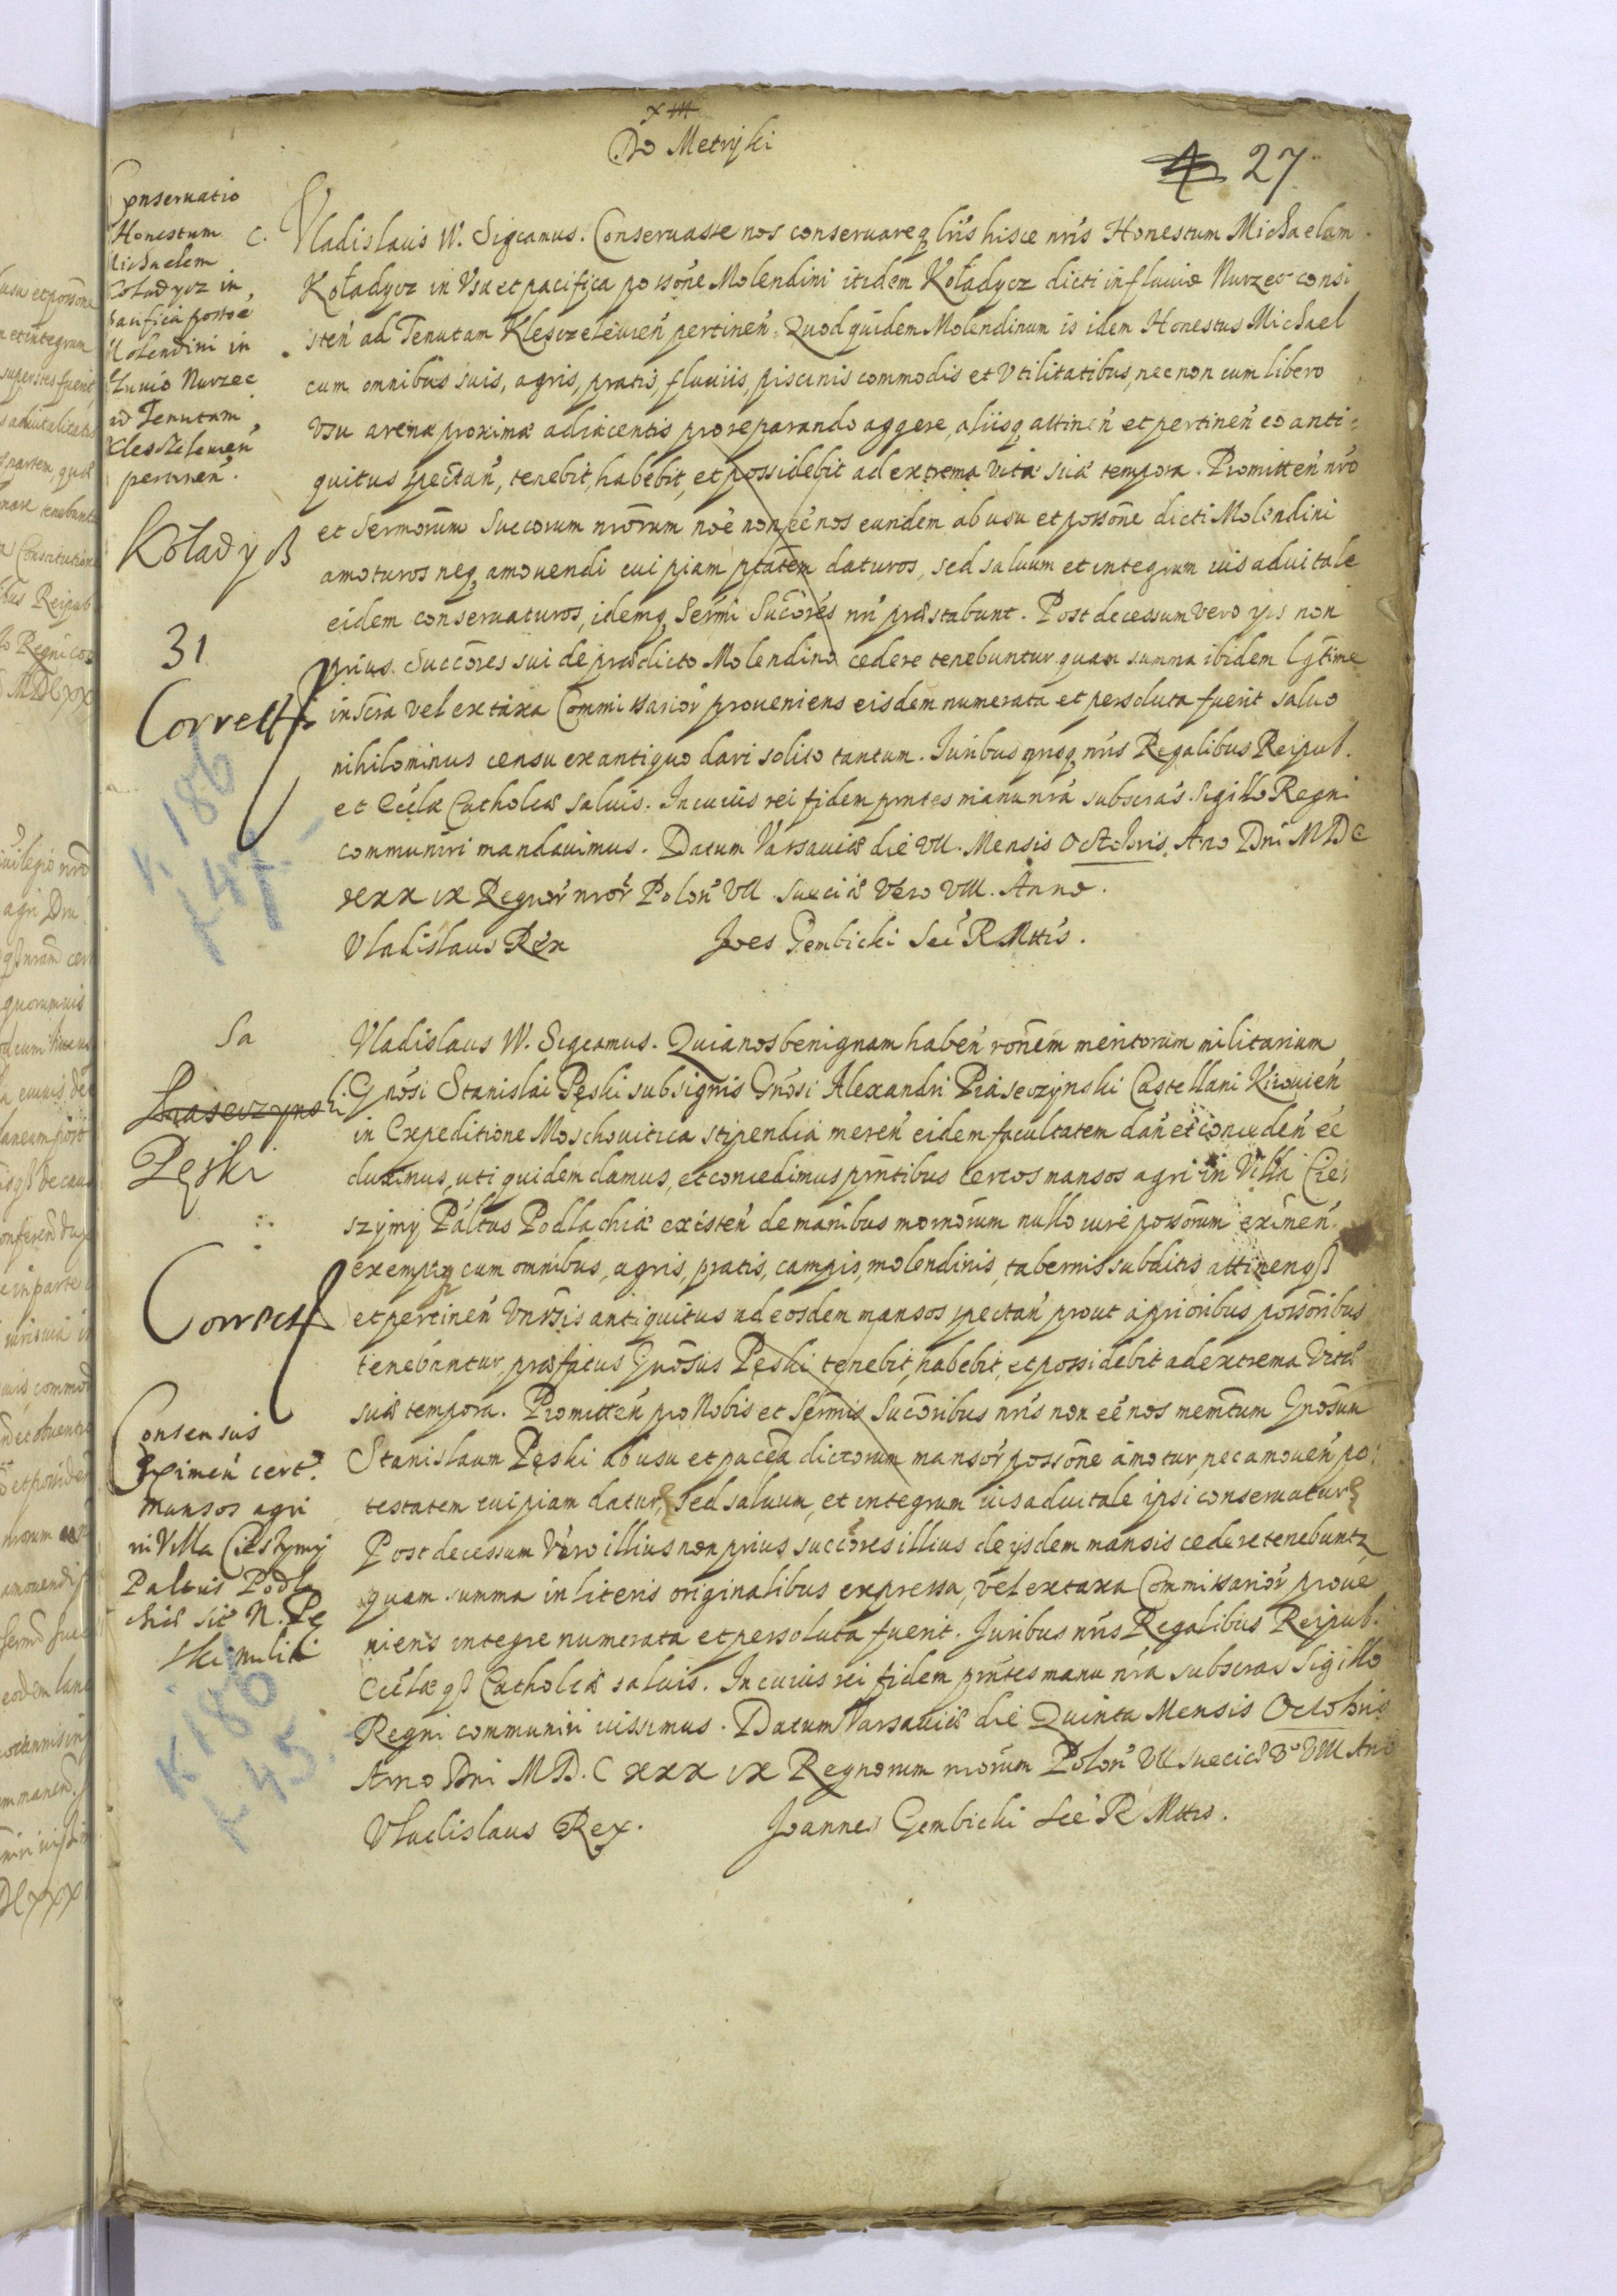 Do Metryki
27
Conservatio
Honestum
Michaelem
Koładycz in
pacifica possōe
Molendini in
Fluvio Nurzec
ad Tenutam
Klesczelewień
pertineń.
Koładycz
31
Correct
K 186
f 47
C. Vladislaus W. Sigcamus. Conseruasse nos conseruareq lris hisce nris Honestum Michaelem
Koładycz in Vsu et pacifica possone Molendini itidem Koładycz dicti in fluuio Nurzec consi
steń ad Tenutam Klesczeleuień pertineń. Quod quidem Molendinum is idem Honestus Michael
cum omnibus suis, agris, pratis, fluuiis, piscinis commodis et Vtilitatibus, nec non cum libero
vsu arenæ proximæ adiacentis pro reparando aggere, aliisq attineń et pertineń eo anti=
quitus spectań, tenebit, habebit, et possidebit ad extrema vitæ suæ tempora. Promitteń nro
et Sermorum Succorum nrorum noe non eē nos eundem ab usu et possone dicti Molendini
amoturos neq amouendi cuipiam ptatem daturos, sed saluum et integrum ius aduitale
eidem conseruaturos, idemq Sermi Succores nri præstabunt. Post decessum vero ips non
prius Succores sui de prædicto Molendino cedere tenebuntur quam summa ibidem lgtime
inscra vel ex taxa Commissarior proueniens eisdem numerata et persoluta fuerit saluo
nihilominus censu ex antiquo dari solito tantum. Juribus qnsq nris Regalibus Reipub.
et Eccłæ Catholicæ saluis. In cuius rei fidem pntes manu nra subscras Sigillo Regni
communiri mandauimus. Datum Varsauiæ die VII. Mensis Octobris Ano Dni MDC
XXX IX Regnor nror Polon VII Sueciæ Vero VIII. Anno.
Vladislaus Rex Joes Gembicki Sec R Mttis.
Sa
Piaseczynski
Pęski
Correct
Consensus
Eximeń cert.
mansos agri
in Villa Cieszymy
Paltus Podla
chiæ sit N. Pę
ski militi
K 186
f 45
Vladislaus W. Sigcamus. Quia nos benignam habeń ronem meritorum militarium
Gnosi Stanislai Pęski sub signis Gnosi Alexandri Piaseczynski Castellani Kiiouień
in Expeditione Moschouitica stipendia mereń eidem facultatem dań et concedeń eē
duximus, uti quidem damus, et concedimus pntibus certos mansos agri in Villa Cie=
szymy Paltus Podlachiæ existeń de manibus mornorum nullo iure possorum eximeń.
exemptisq cum omnibus, agris, pratis, campis, molendinis, tabernis subditis attinenqs
et pertineń vnrsis antiquitus ad eosdem mansos spectań prout a prioribus possoribus
tenebantur, præfatus Gnosus Pęski tenebit, habebit, et possidebit ad extrema Vitæ
suæ tempora. Promitteń pro Nobis et Sermis Succoribus nris non eē nos memtum Gnosum
Stanislaum Pęski ab usu et pacea dictorum mansor possone amotur, nec amoueń po=
testatem cuipiam datur, sed saluum, et integrum ius aduitale ipsi conseruatur
Post decessum Vero illius non prius succores illius de ijsdem mansis cedere tenebuntr
quam summa in literis originalibus expressa, vel ex taxa Commissarior proue
niens integre numerata et persoluta fuerit. Juribus nris Regalibus Reipub.
Eccłæ qs Catholicæ saluis. In cuius rei fidem pntes manu nra subscras Sigillo
Regni communiri iussimus. Datum Varsauiæ die Quinta Mensis Octobris
Anno Dni MD.C XXX IX Regnorum nrorum Polon VII Sueciæ Vo VIII Ano
Vladislaus Rex. Joannes Gembicki Sec R Mttis.